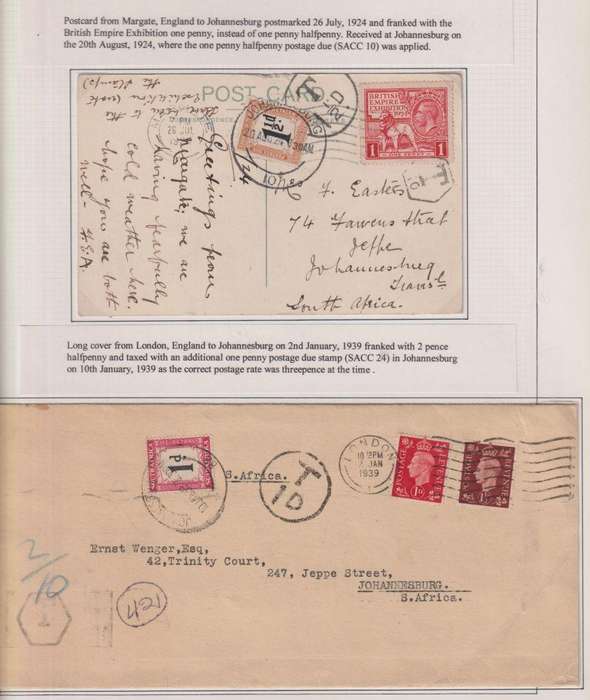 Postcard from Margate, England to Johannesburg postmarked 26 July, 1924 and franked with the
British Empire Exhibition one penny, instead of one penny halfpenny. Received at Johannesburg on
the 20th August, 1924, where the one penny halfpenny postage due (SACC 10) was applied.
POST CARD
Greetings from
Margate, we are
having fearfully
cold weather here.
hope you are both
well - 
JOHANNESBURG
20 AUG 24 
1½d
T
BRITISH
EMPIRE
EXHIBITION
1924
1 ONE PENNY 1
T
F. Easters
74 Fawcus that
Jeppe
Johannesburg
South Africa.
Long cover from London, England to Johannesburg on 2nd January, 1939 franked with 2 pence
halfpenny and taxed with an additional one penny postage due stamp (SACC 24) in Johannesburg
on 10th January, 1939 as the correct postage rate was threepence at the time .
1d
S.Africa.
T
1D
LONDON
JAN
1939
POSTAGE REVENUE
POSTAGE REVENUE
2/10
Ernst Wenger,Esq,
42,Trinity Court,
247, Jeppe Street,
JOHANNESBURG.
S.Africa.